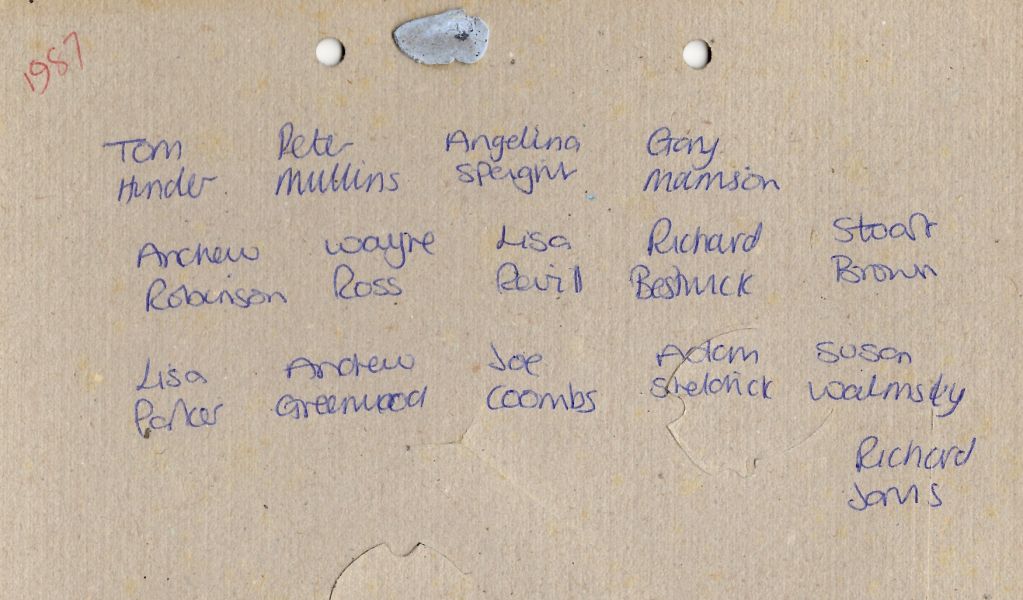 1987
Tom Peter Angelina Gary
Hinder Mullins Speight
Andrew Wayne Lisa Richard Stuart
Robinson Ross Revill Bestwick Brown
Lisa Andrew Joe Adam Susan
Parker Greenwood Coombs Sheldrick Walmsley
Richard